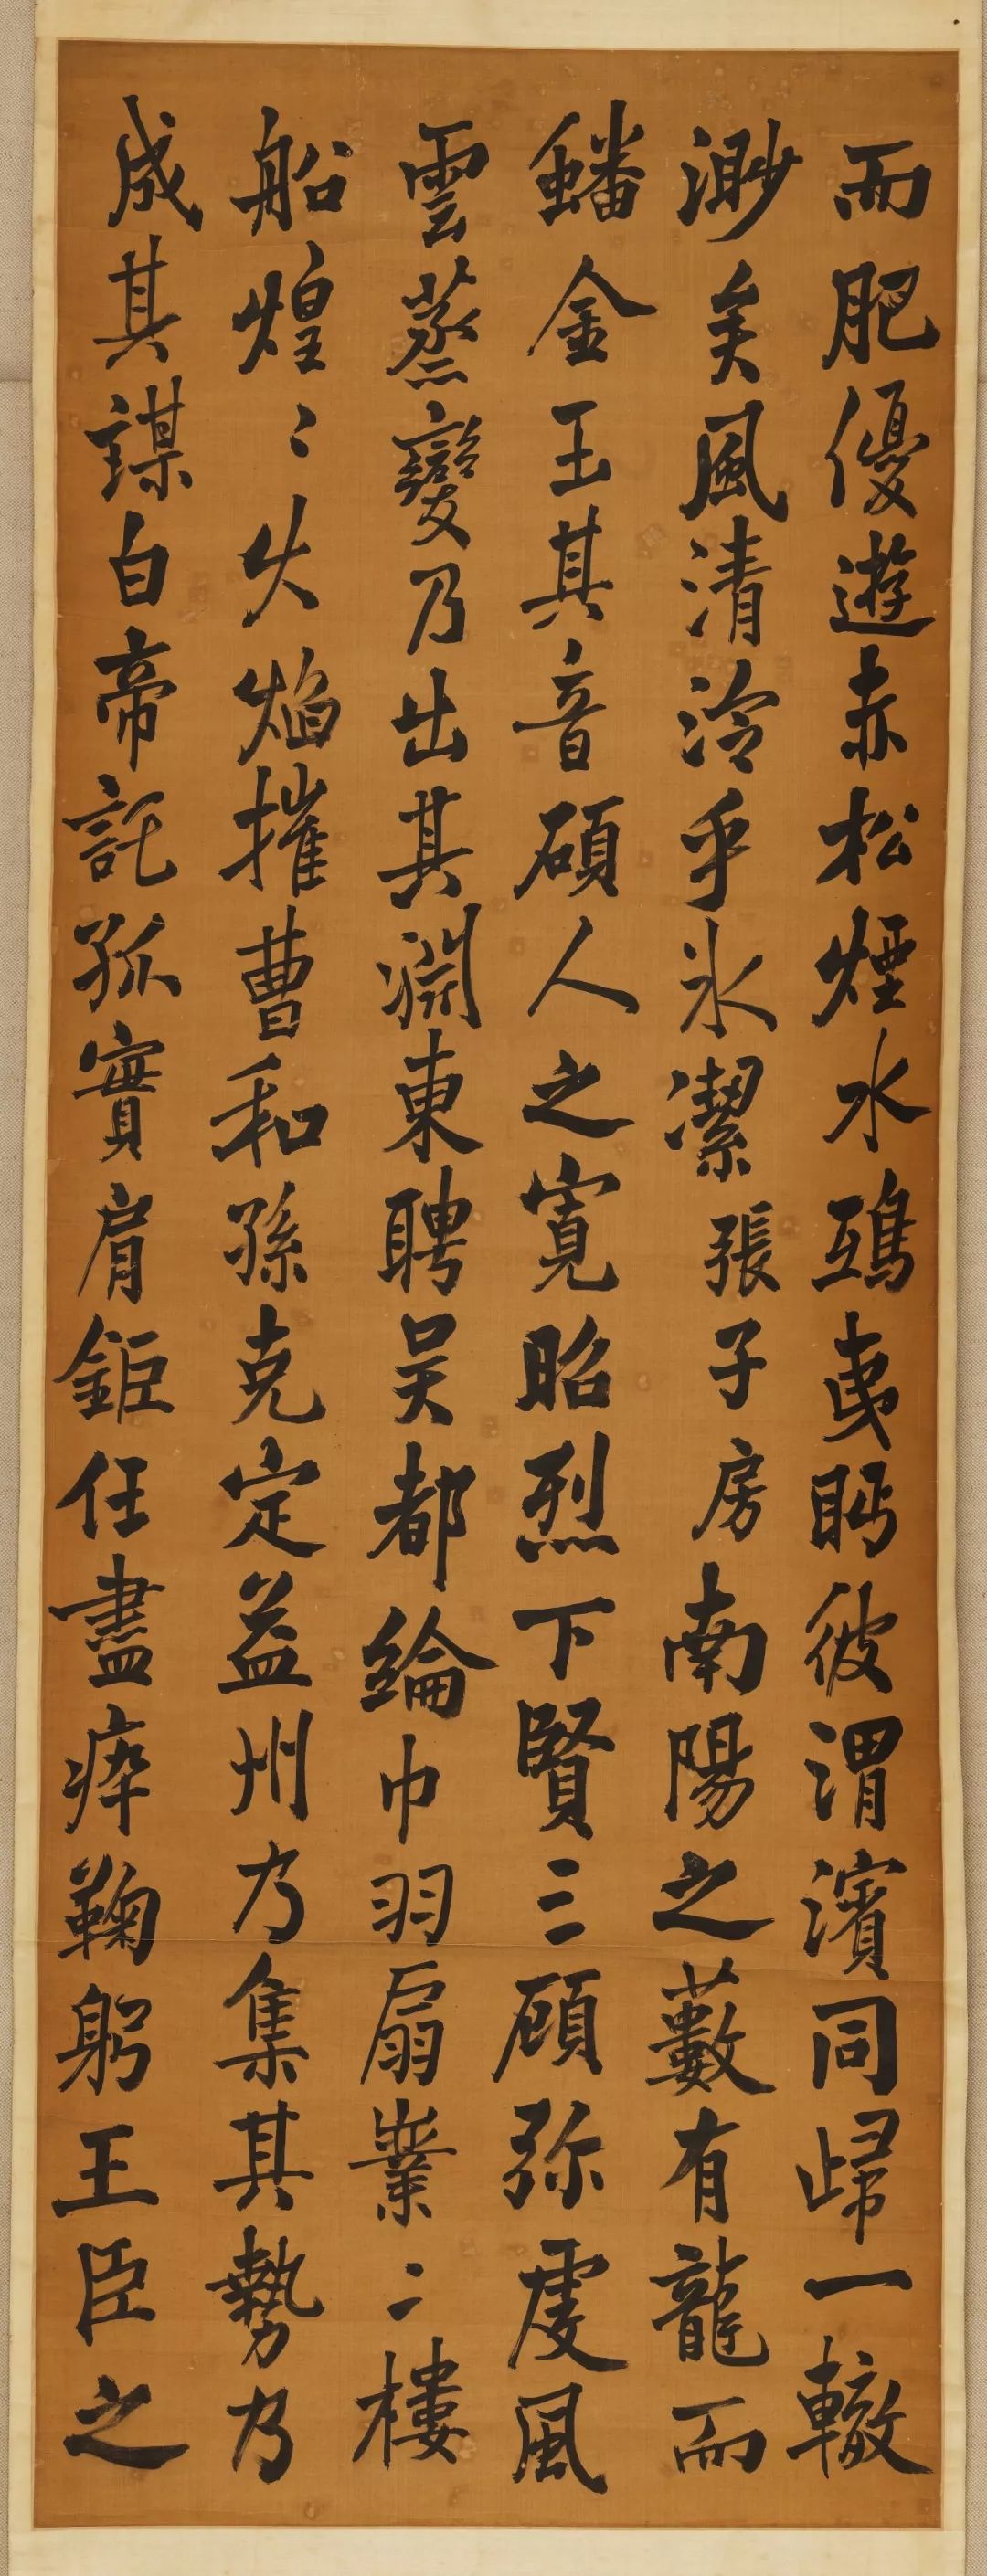 而肥優遊赤松煙水鴟夷眄彼渭濱同歸一轍
渺矣風清泠乎氷潔張子房南陽之藪有龍而
蟠金玉其音碩人之寬昭烈下賢三顧弥虔風
雲蒸變乃出其淵東聘吴都綸巾羽扇業〻樓
船煌〻火焰摧曹和孫克定益州乃集其勢乃
成其謀白帝託孤實肩鉅任盡瘁鞠躬王臣之